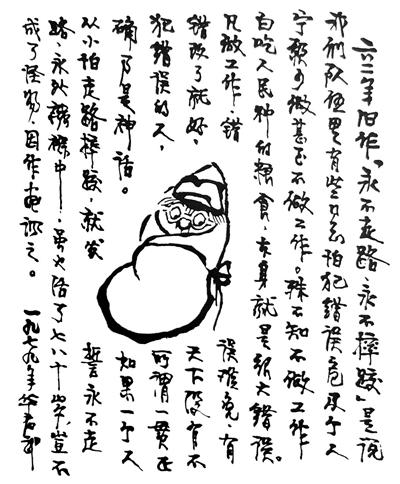 六二年旧作「永不走路、永不摔跤」是说
我们队伍里有些同志怕犯错误危及个人
宁愿少做甚至不做工作。殊不知不做工作
白吃人民种的粮食，本身就是很大错误。
凡做工作，错误难免，有
错改了就好，天下没有不
犯错误的人，所谓一贯正
确，乃是神话。如果一个人
从小怕走路摔跤，就发誓永不走
路，永处襁褓中，虽也活了七八十岁岂不
成了怪物？因作画讽之。 一九七九年华君武